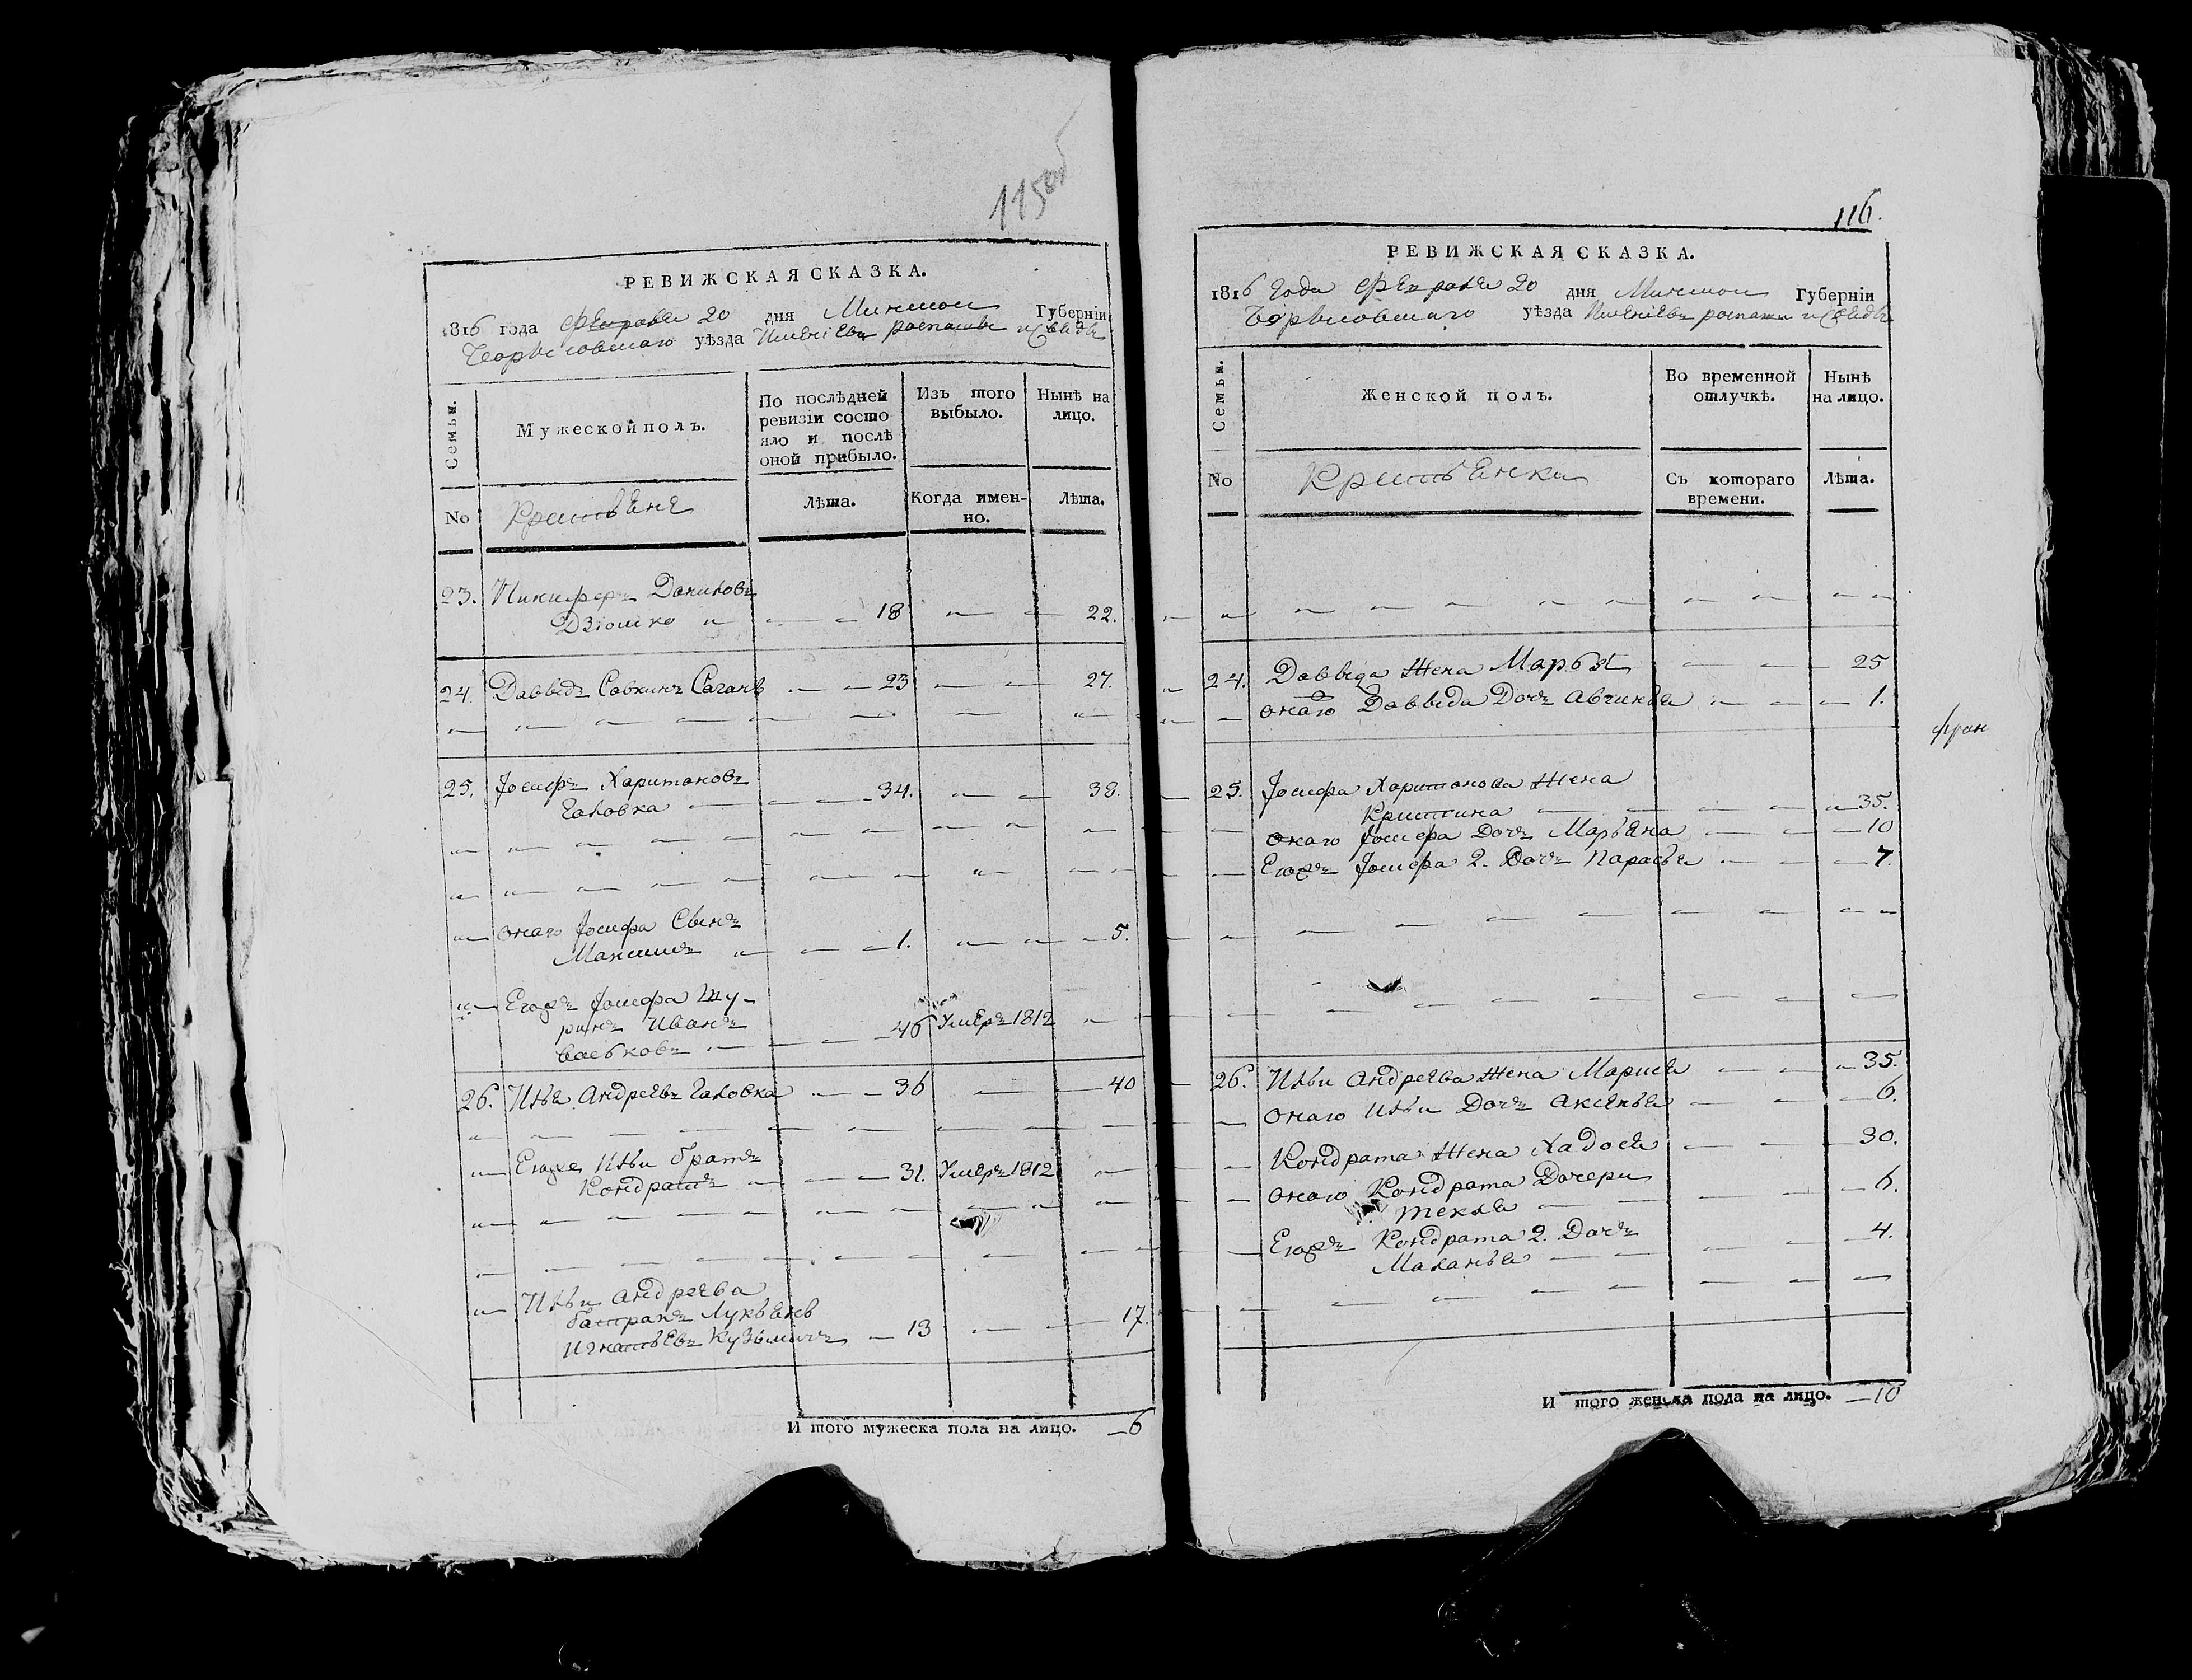 115об
РЕВИЖСКАЯ СКАЗКА.
1816 года Февраля 20 дня Минской Губерніи
Борысовскаго уѣзда
Семьи.
Мужеской полъ.
По послѣдней ревизіи состояло и послѣ оной прибыло.
Изъ того выбыло.
Нынѣ на лицо.
No
Крестьяне
Лѣта.
Когда именно.
Лѣта.
23. Никифоръ Даниловъ
Дзюшко 18 22.
24. Давыдъ Савкинъ Саганъ 23 27.
25. Іосифъ Харитоновъ
Галовка 34. 38.
онаго Іосифа Сынъ
Максимъ 1. 5.
Егожъ Іосифа Шу-
ринъ Иванъ
Васьковъ 46 Умеръ 1812
26. Илья Андреевъ Галовка 36 40
Егоже Ильи братъ
Кондратъ 31. Умеръ 1812
Ильи Андреева
батракъ Лукьянъ
Игнатьевъ Кузьмичъ 13 17.
И того мужеска пола на лицо. 6
116.
РЕВИЖСКАЯ СКАЗКА.
1816 года Февраля 20 дня Минской Губерніи
Борысовскаго уѣзда
Семьи.
Женской полъ.
Во временной отлучкѣ.
Нынѣ на лицо.
No
Крестьянки
Съ котораго времени.
Лѣта.
24. Давыда Жена Марья 25
онаго Давыда Дочь 1.
25. Іосифа Харитонова Жена
Кристина 35.
онаго Іосифа Дочь Марьяна 10
Егожъ Іосифа 2. Дочь Парасья 7.
26. Ильи Андреева Жена Марися 35.
онаго Ильи Дочь Аксенья 6.
Кондрата Жена Хадося 30.
онаго Кондрата Дочери
Текля 6.
Егожъ Кондрата 2. Дочь
Маланья 4.
И того женска пола на лицо. 10